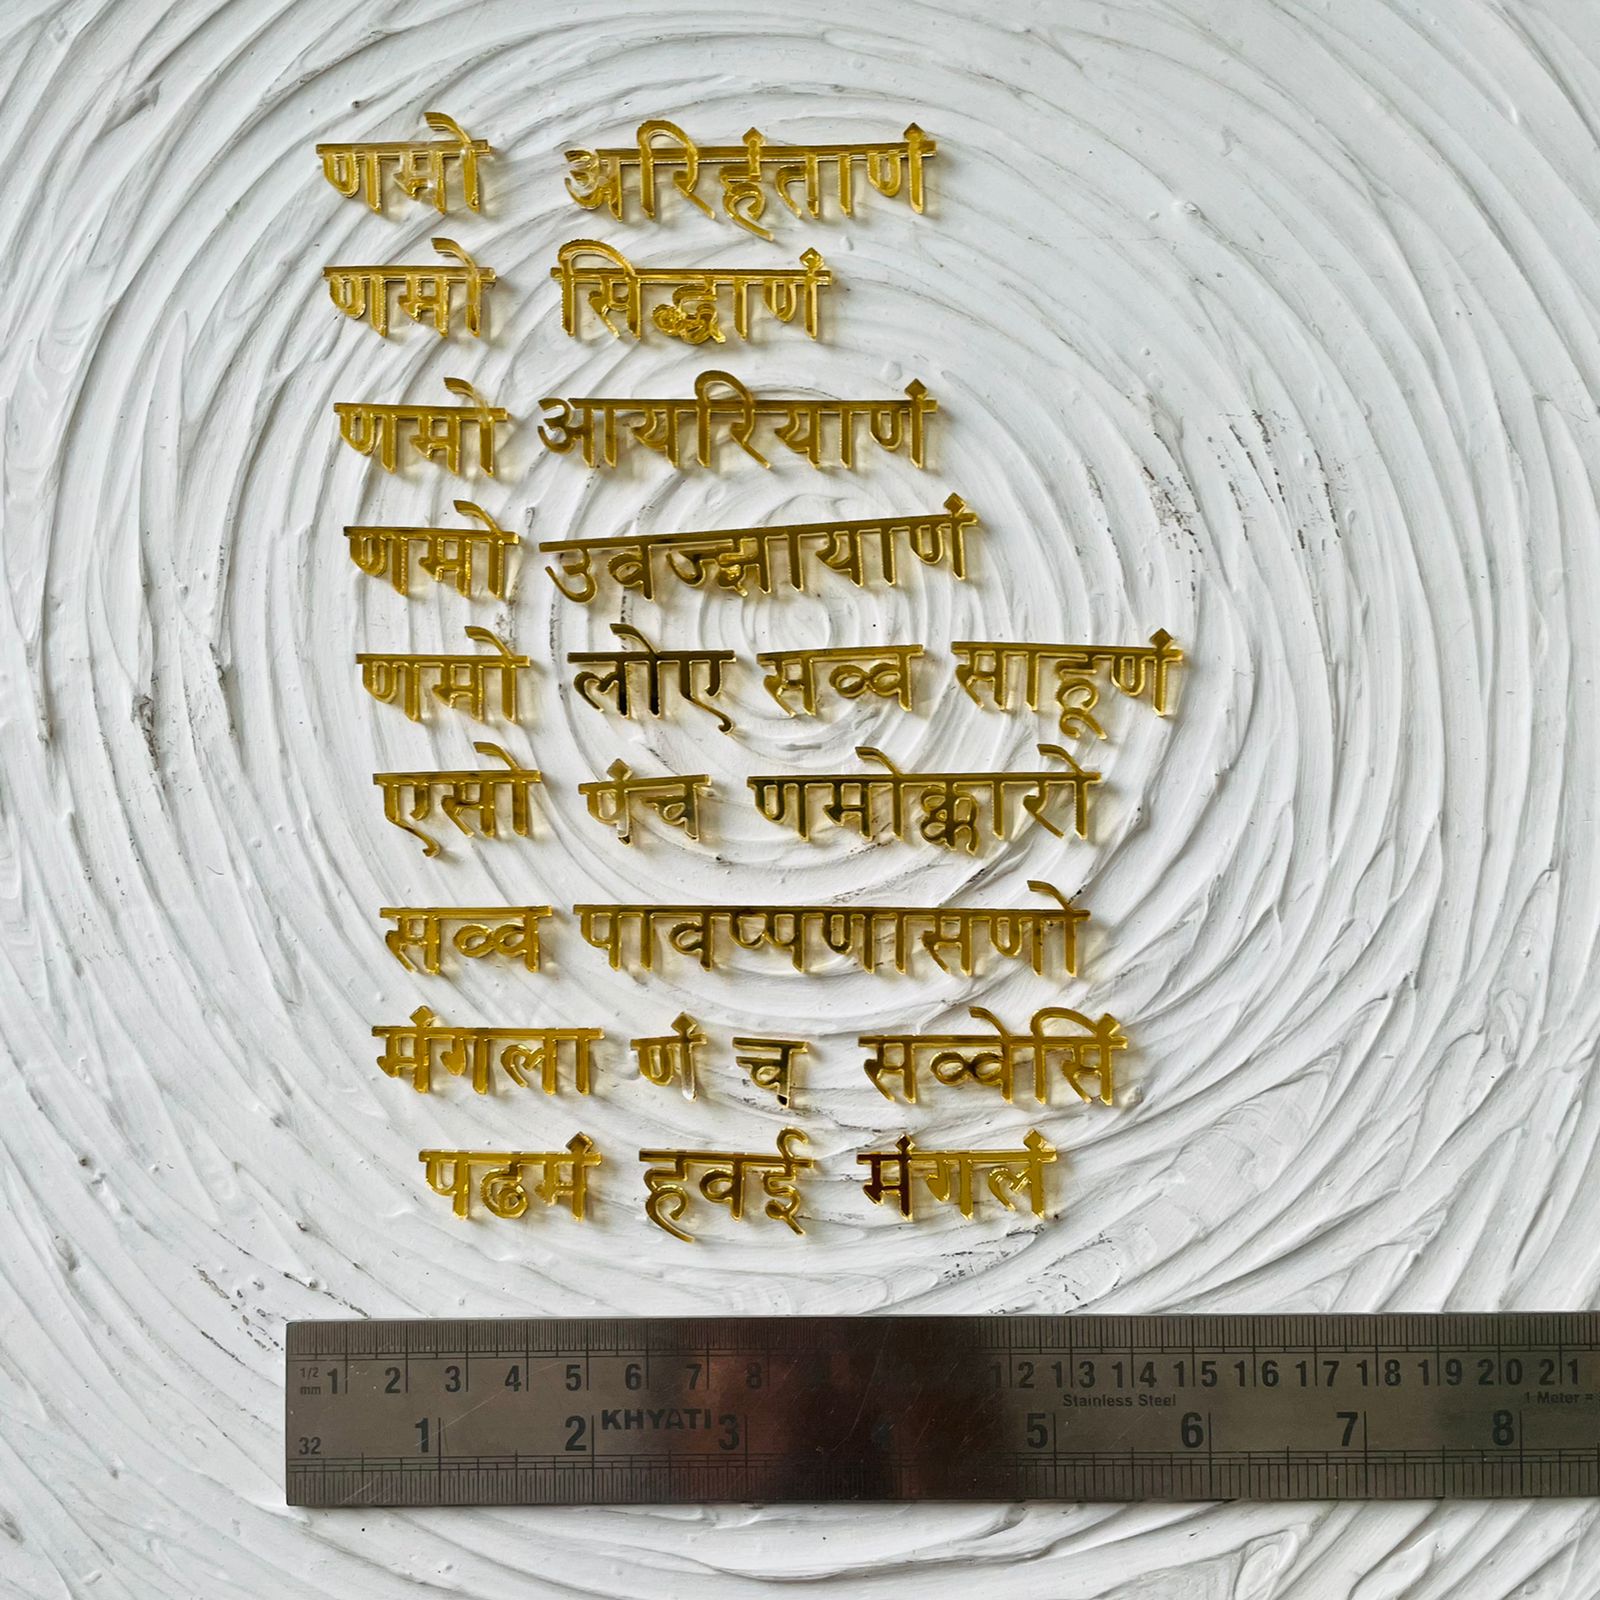 णमो अरिहंताणं
णमो सिद्धाणं
णमो आयरियाणं
णमो उवज्झायाणं
णमो लोए सव्व साहूणं
एसो पंच णमोक्कारो
सव्व पावप्पणासणो
मंगला णं च सव्वेसिं
पढमं हवई मंगलं
1/2 mm 1 2 3 4 5 6 7 8 12 13 14 15 16 17 18 19 20 21
Stainless Steel 1 Meter =
32 1 2 KHYATI 3 4 5 6 7 8